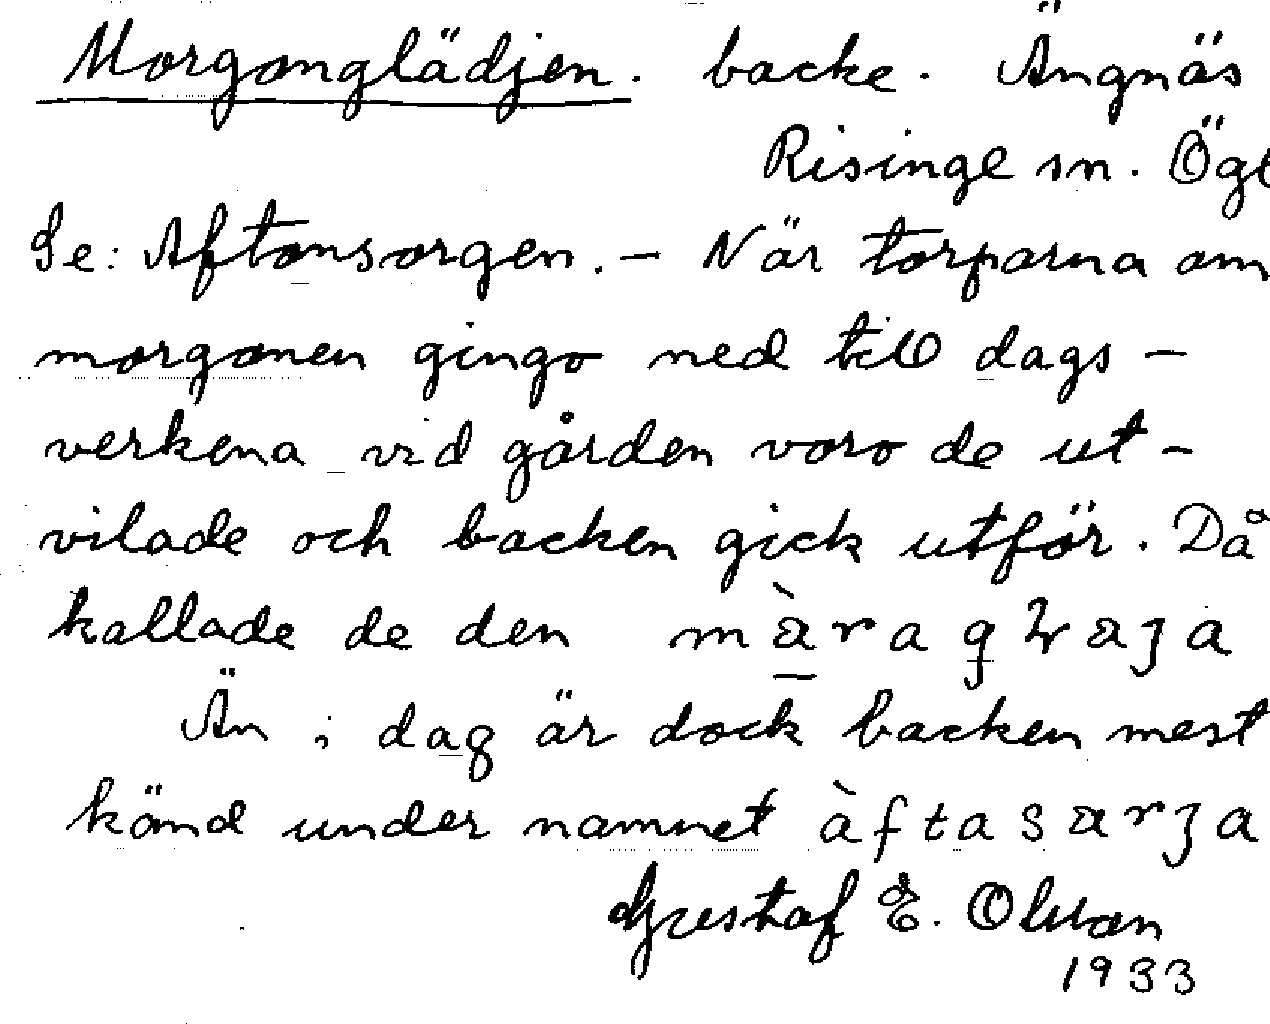 Morgonglädjen. backe. Ängnäs
Risinge sn. Ögl
Se: Aftonsorgen. — När torparna om
morgonen gingo ned till dags-
verkena vid gården voro de ut-
vilade och backen gick utför. Då
kallade de den
Än i dag är dock backen mest
känd under namnet
Gustaf E. Olsson
1933